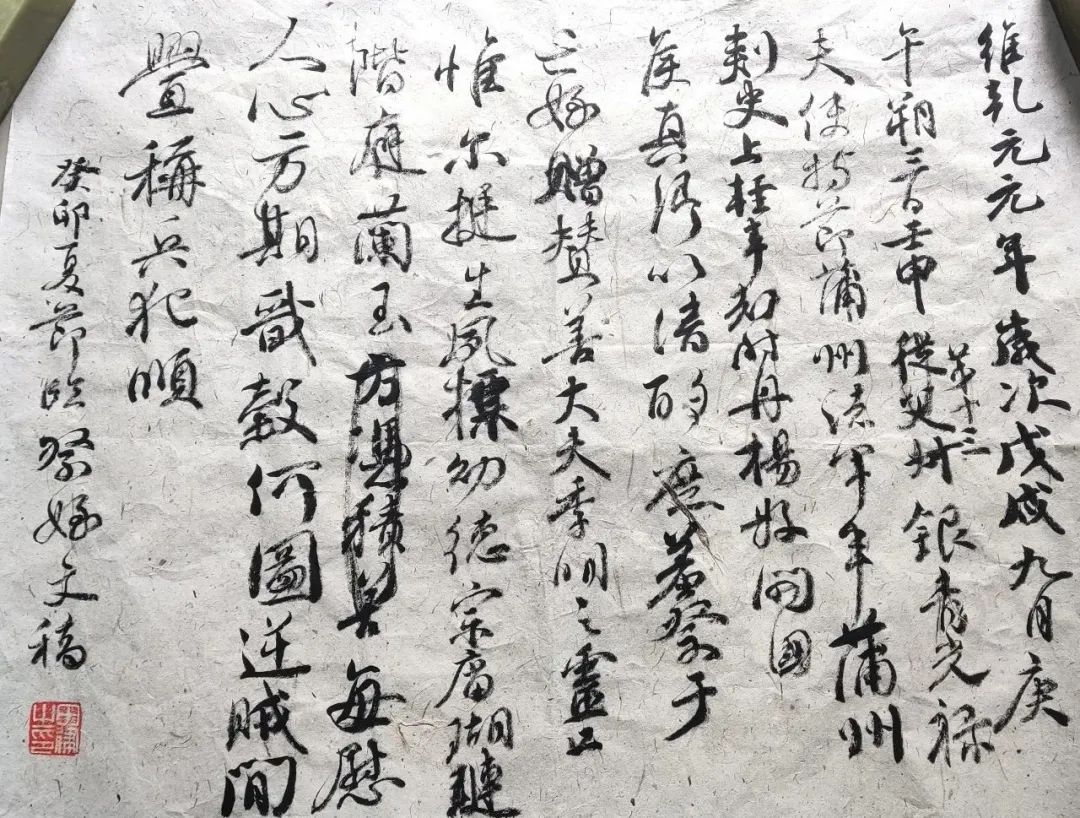 維乾元元年歲次戊戌九月庚
午朔三日壬申第十三從父叔銀青光祿
夫使持節蒲州諸軍事蒲州
刺史上輕車都尉丹楊縣開國
侯真卿以清酌庶羞祭于
亡姪贈贊善大夫季明之靈曰
惟爾挺生夙標幼德宗廟瑚璉
階庭蘭玉方馮積善每慰
人心方期戩穀何圖逆賊間
釁稱兵犯順
癸卯夏節臨祭姪文稿